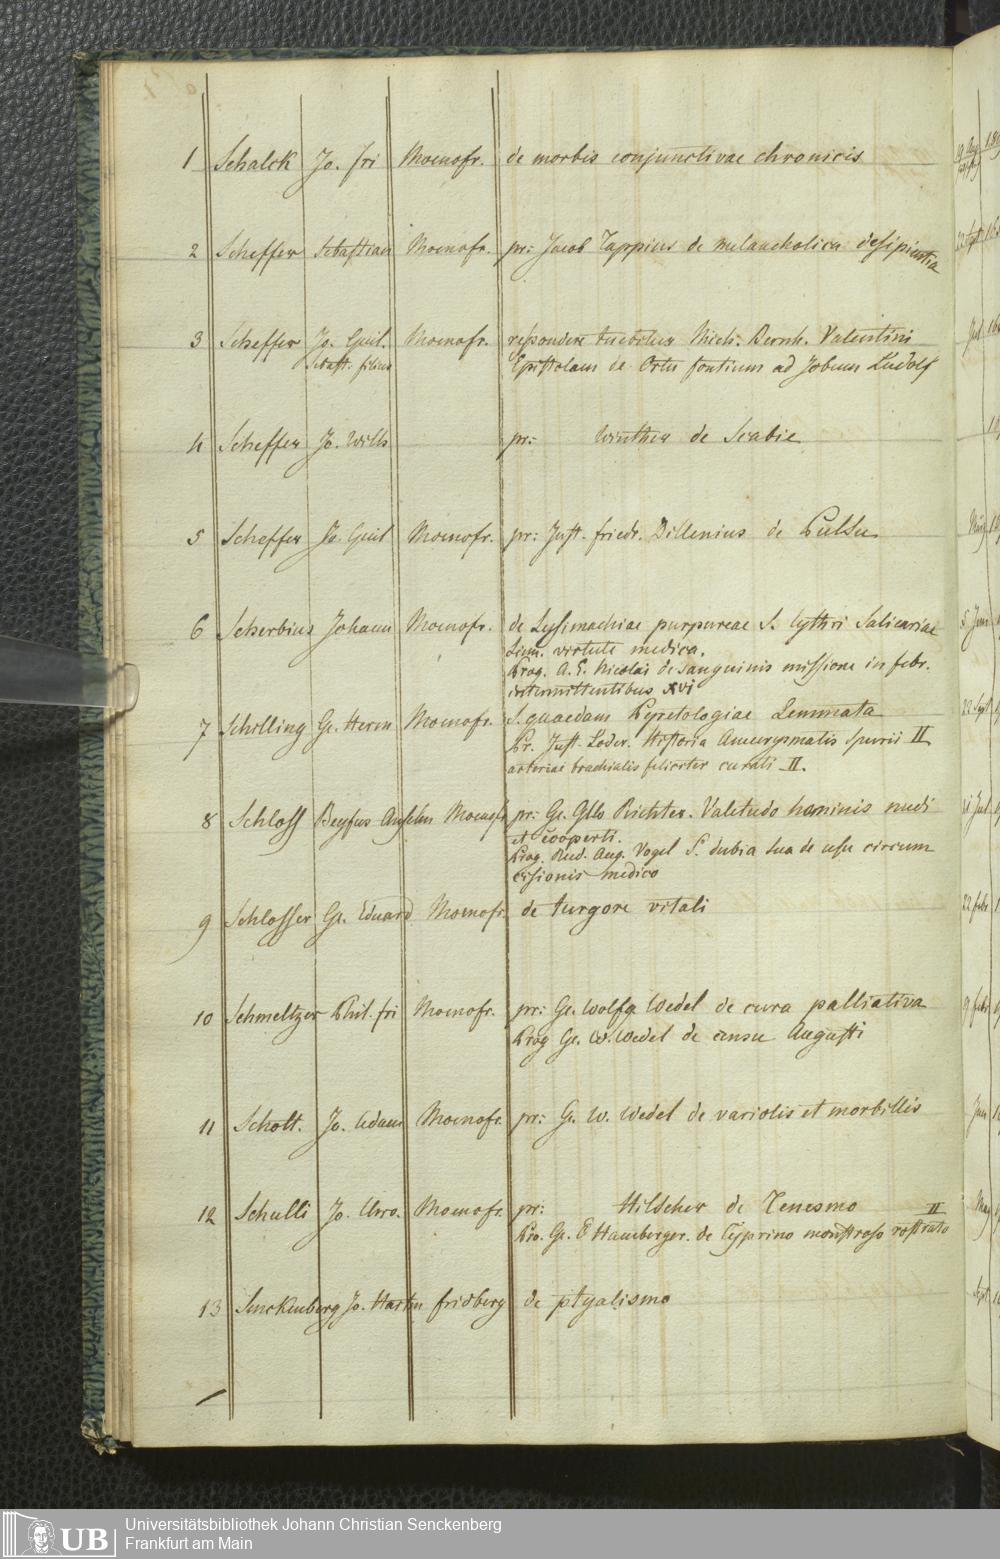 1 Schalck Jo. fri Moenofr. de morbis conjunctivae chronicis
2 Scheffer Sebastian Moenofr. pr: Jacob Tappius de melancholica desipientia
3 Scheffer Jo. Guil. Moenofr. respondere tuebitur Mich. Bernh. Valentini
Sebast. filius Epistolam de Ortu fontium ad Jobum Ludolf
4 Scheffer Jo. Wilh pr: Winther de Scabie
5 Scheffer Jo. Guil Moenofr. pr: Just. friedr. Dillenius de Pulsu
6 Scherbius Johann Moenofr. de Lysimachiae purpureae S. lythri Salicariae
Linn. virtute medica.
Prog. A. E. Nicolai de sanguinis missione in febr.
intermittentibus XVI
7 Schilling Ge. Herm Moenofr. S. quaedam Pyretologiae Lemmata
Pr. Just. Loder. Historia Aneurysmatis Spurii II
arteriae brachialis feliciter curati II.
8 Schloss Beyfus Anselm Moenofr. pr: Ge. Gllo Richter. Valetudo hominis nudi
et cooperti.
Prog. Rud. Aug. Vogel S. dubia sua de usu circum
cisionis medico
9 Schlosser Ge. Eduard Moenofr. de turgore vitali
10 Schmeltzer Phil. fri Moenofr. pr: Ge. Wolfg. Wedel de cura palliativa
Prog Ge. W. Wedel de censu Augusti
11 Schott. Jo. Adam Moenofr. pr: Ge. W. Wedel de variolis et morbillis
12 Schulli Jo. Moenofr. pr: Hilscher de Tenesmo
Pro. Ge. E Hamberger. de Cyprino monstroso rostrato II
13 Senckenberg Jo. Hartm fridberg de ptyalismo
UB
Universitätsbibliothek Johann Christian Senckenberg
Frankfurt am Main